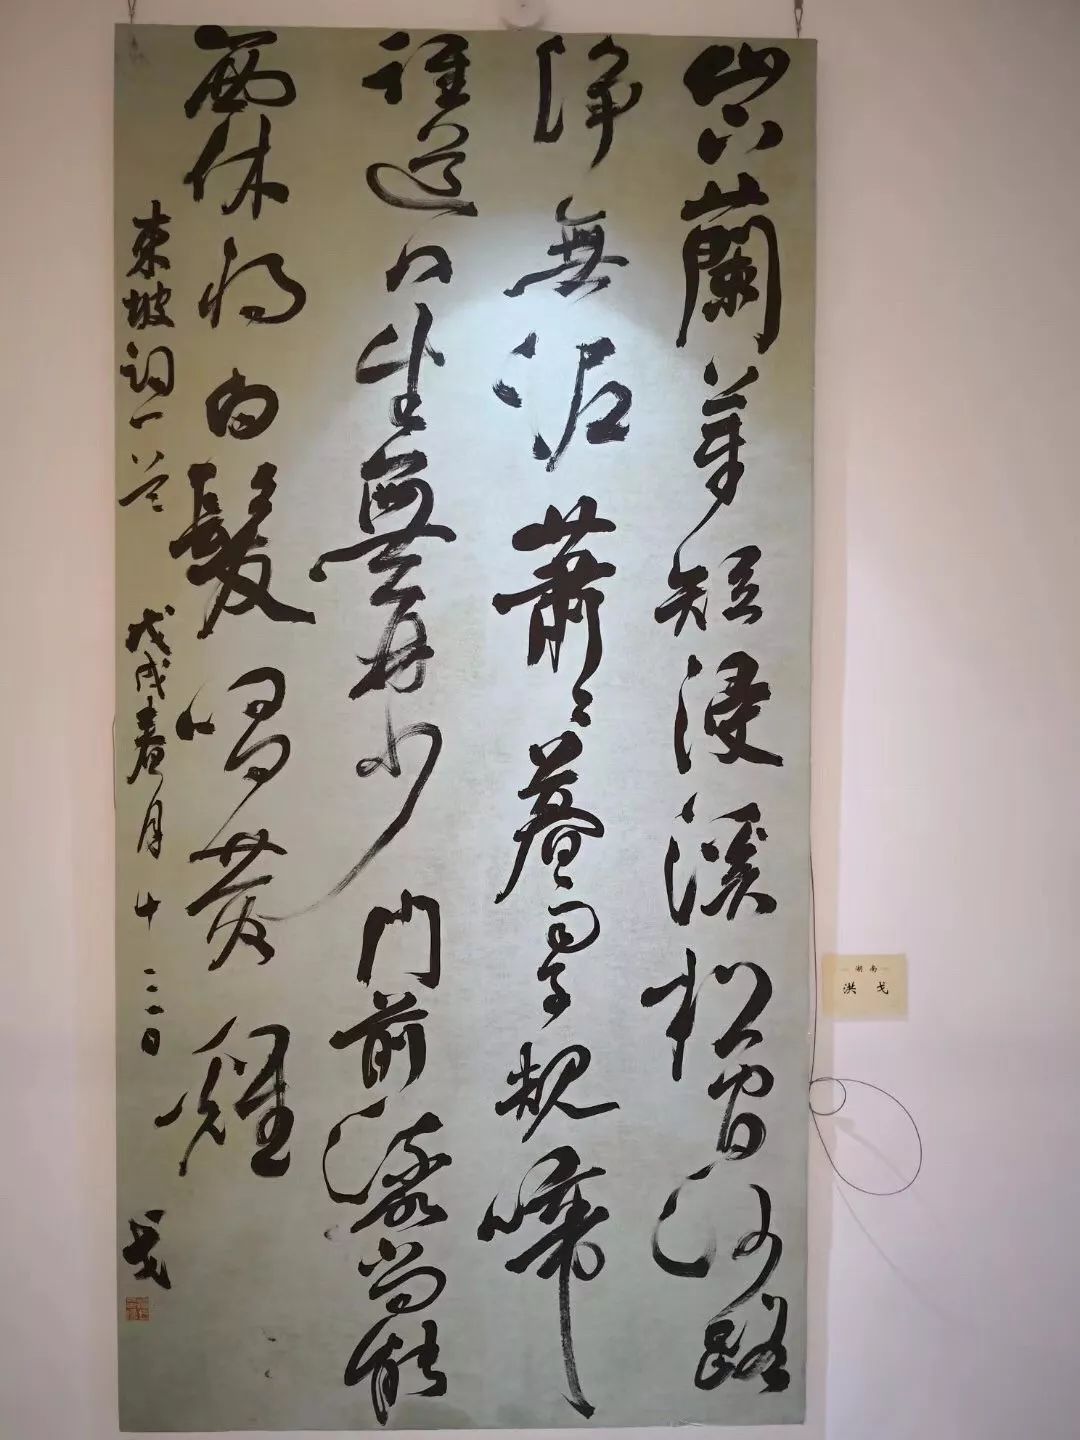 山下蘭芽短浸溪松間沙路
淨無泥蕭〻暮雨子規啼
誰道人生無再少門前流尚能
西休將白髮唱黃雞
東坡詞一首 戊戌春月十三日 戈
湖南
洪戈